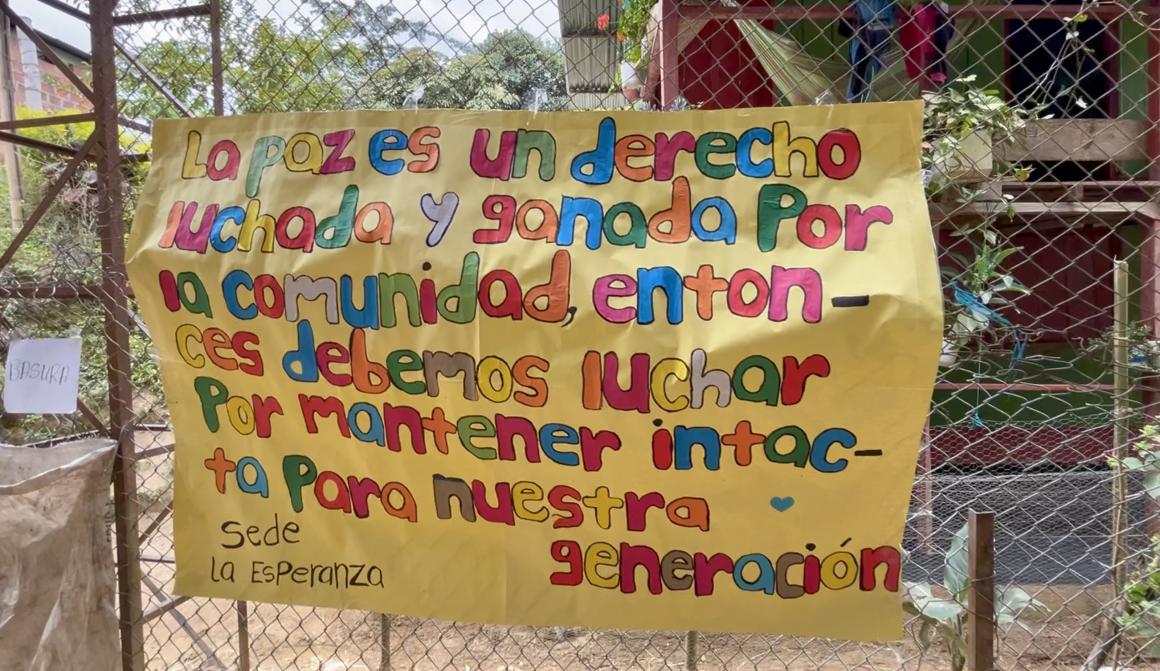 La paz es un derecho
luchada y ganada Por
la comunidad, enton-
ces debemos luchar
Por mantener intac-
ta Para nuestra
generación
Sede
la EsPeranza
BASURA